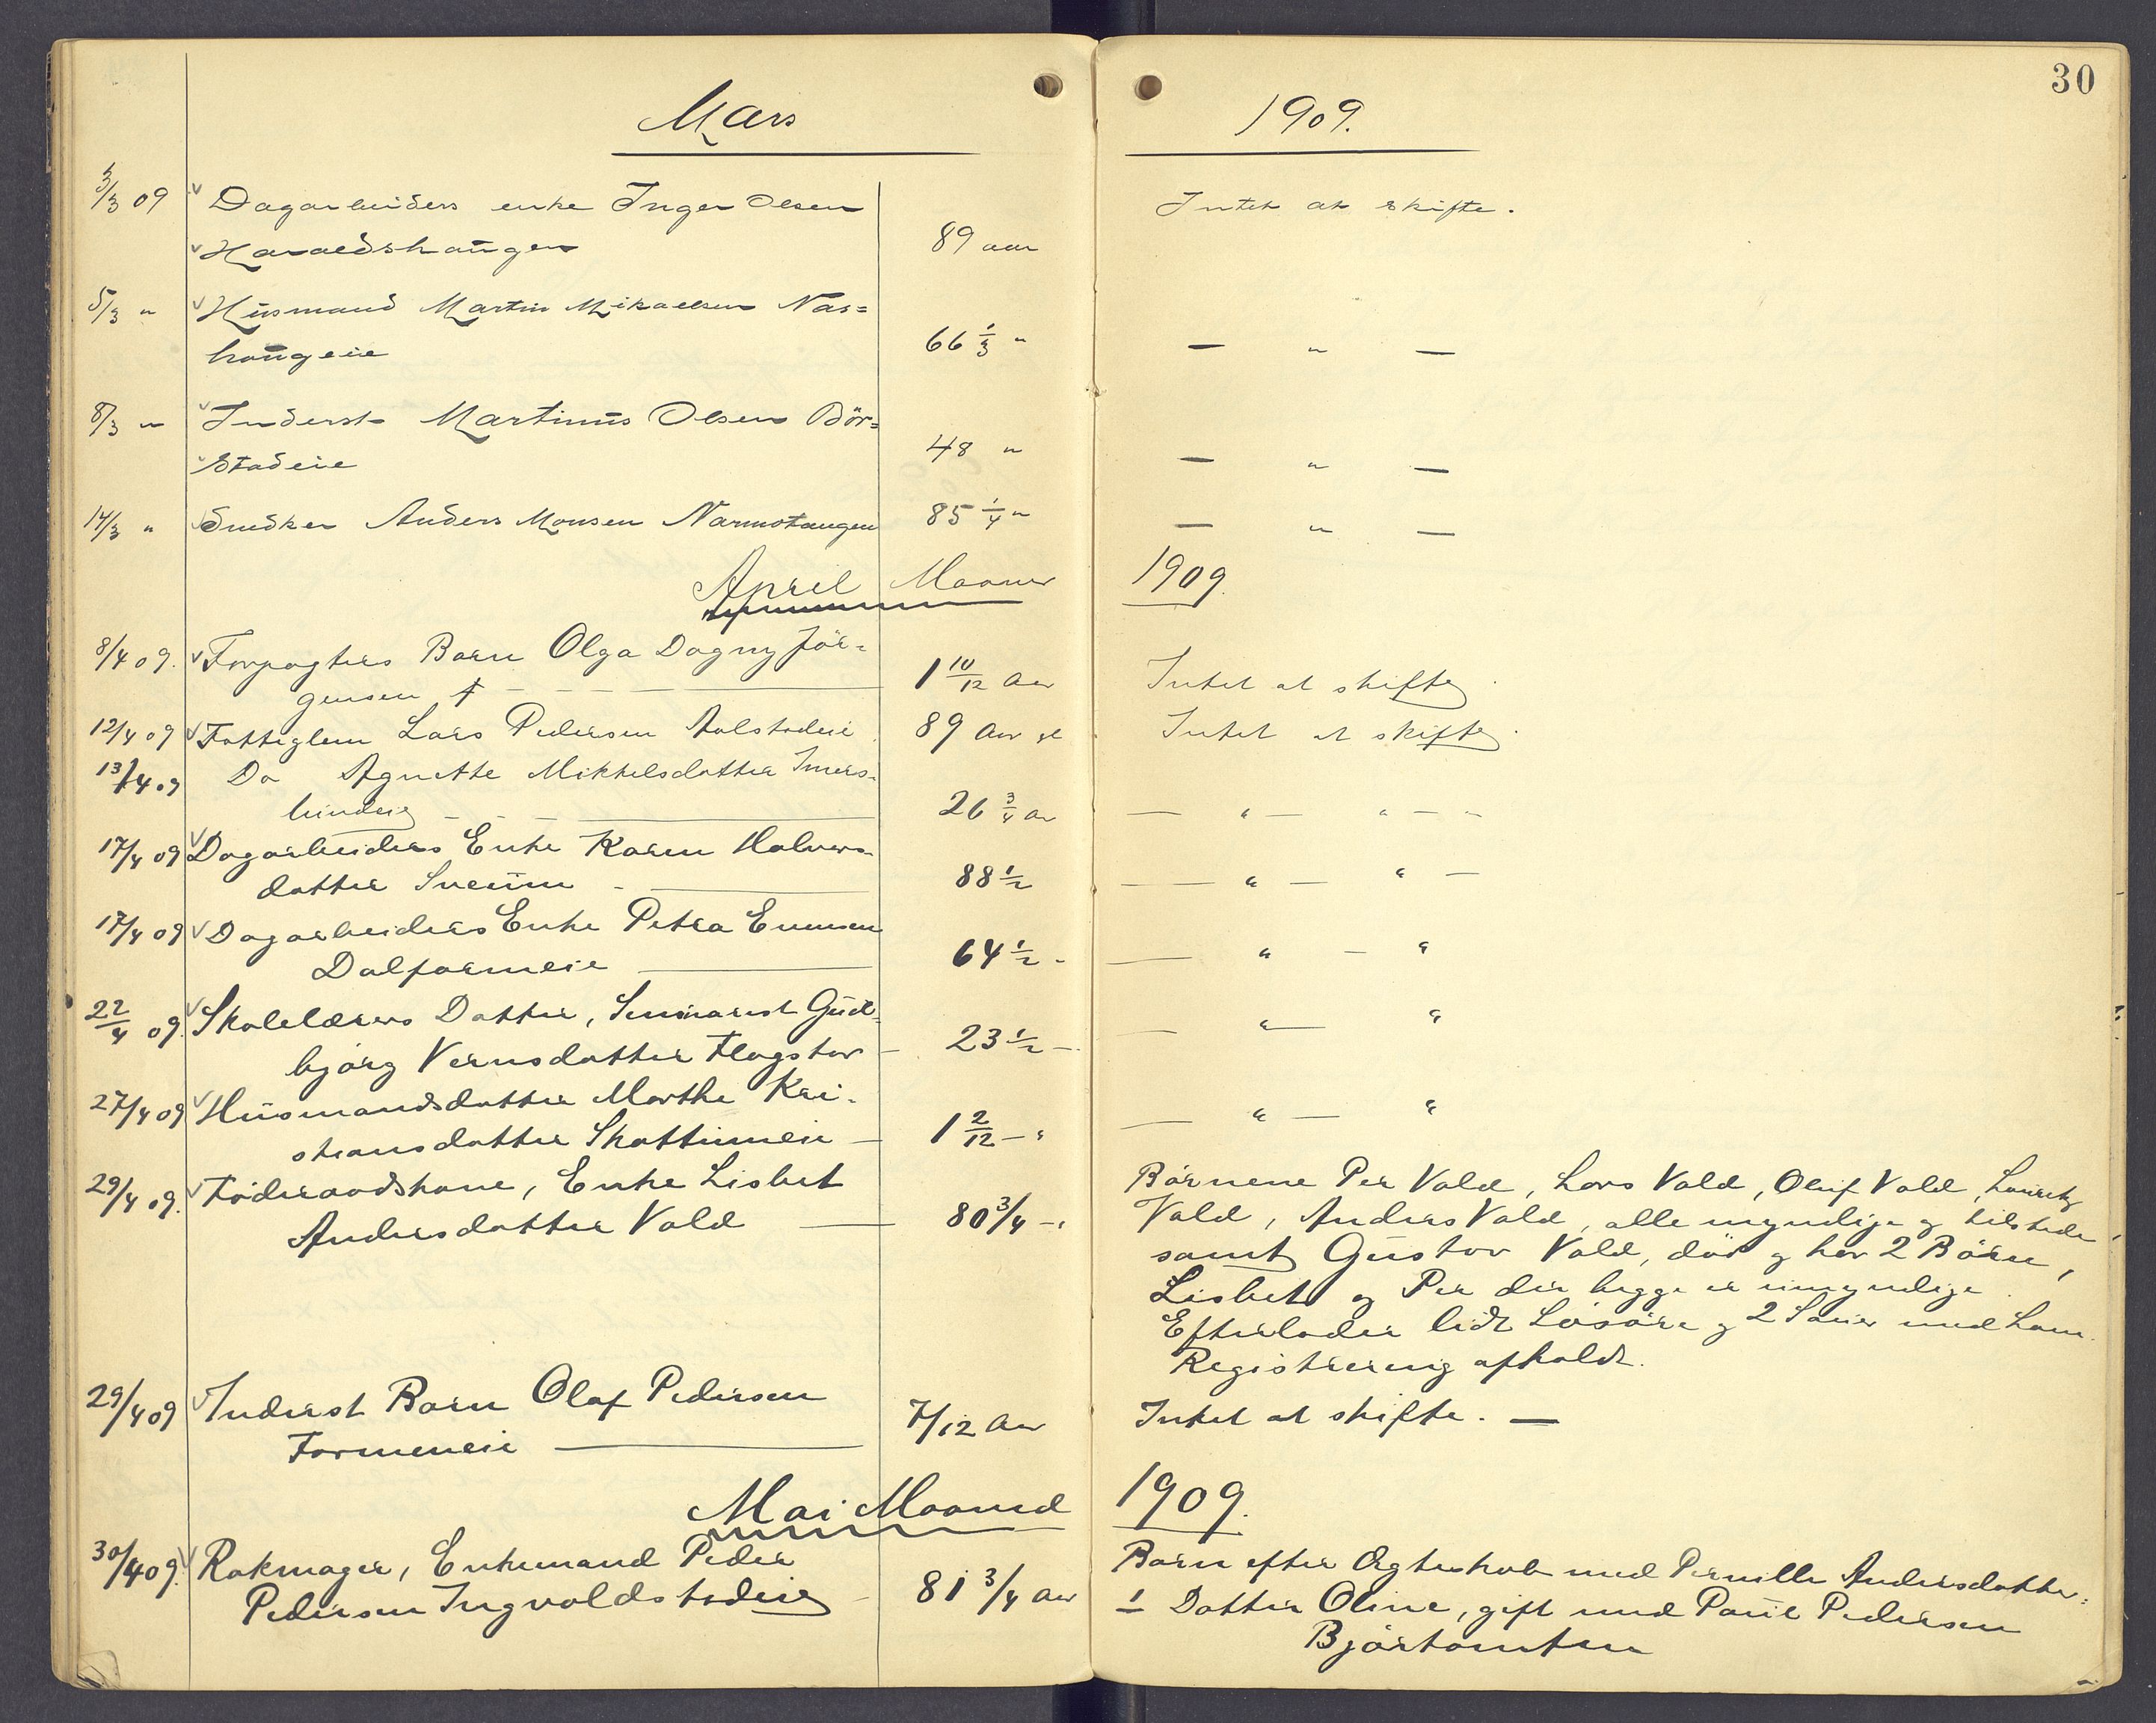 30
Mars 1909.
3/3 09 Dagarbeiders enke Inger Olsen Intet at skifte.
Haraldshaugen 89 aar
5/3 " Husmand Martin Mikaelsen Nas=
haugeie 66 1/3 " — " —
8/3 " Inderst Martinus Olsen Bör=
stadeie 48 " — " —
14/3 " Snedker Anders Monsen Narmotangen 85 1/4 " — " —
April Maaned 1909.
8/4 09. Forpagters Barn Olga Dagny Jör-
gensen 1 10/12 Aar Intet at skifte.
12/4 09 Fattiglem Lars Pedersen Aalstadeie 89 Aar Intet at skifte.
13/4 09 Do Agnethe Mikkelsdatter Imers-
lundeie 26 3/4 Aar — " — " — "
17/4 09 Dagarbeiders Enke Karen Halvors-
datter Sveum 88 1/2 — " — " —
17/4 09 Dagarbeiders Enke Petra Evensen
Dalfarmeie 64 1/2 - — " — "
22/4 09. Skolelærers Datter, Seminarist Gud-
bjørg Vernsdatter Flagstad - 23 1/2 - — " — "
27/4 09 Husmandsdatter Marthe Kri-
stiansdatter - 1 2/12 - " — " — "
29/4 09. Föderaadskone, Enke Lisbet Börnene Per Vald, Lars Vald, Oluf Vald, Lauritz
Andersdatter Vald — 80 3/4 - " Vald, Anders Vald, alle myndige og tilstede,
samt Gustav Vald, död og har 2 Börn,
Lisbet og Per der begge er umyndige.
Efterlader lidt Lösöre og 2 Sauer med Lam.
Registrering afholdt.
29/4 09 Inderst Barn Olaf Pedersen 7/12 Aar Intet at skifte. —
Farmeneie —
Mai Maaned 1909.
30/4 09. Rokmager, Enkemand Peder Barn efter Ægteskab med Pernille Andersdatter:
Pedersen Ingvoldstadeie - 81 3/4 Aar 1 Datter Oline, gift med Paul Pedersen
Björtomten